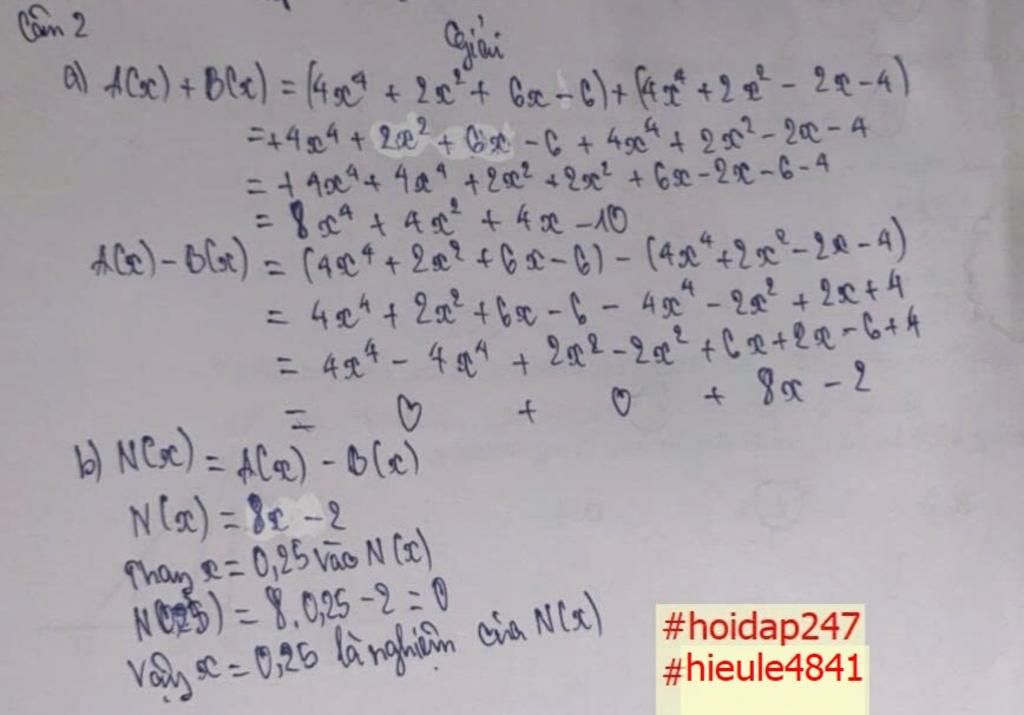 Câu 2
Giải
a) A(x) + B(x) = (4x⁴ + 2x² + 6x - 6) + (4x⁴ + 2x² - 2x - 4)
= + 4x⁴ + 2x² + 6x - 6 + 4x⁴ + 2x² - 2x - 4
= + 4x⁴ + 4x⁴ + 2x² + 2x² + 6x - 2x - 6 - 4
= 8x⁴ + 4x² + 4x - 10
A(x) - B(x) = (4x⁴ + 2x² + 6x - 6) - (4x⁴ + 2x² - 2x - 4)
= 4x⁴ + 2x² + 6x - 6 - 4x⁴ - 2x² + 2x + 4
= 4x⁴ - 4x⁴ + 2x² - 2x² + 6x + 2x - 6 + 4
= 0 + 0 + 8x - 2
b) N(x) = A(x) - B(x)
N(x) = 8x - 2
Thay x = 0,25 vào N(x)
N(0,25) = 8.0,25 - 2 = 0
Vậy x = 0,25 là nghiệm của N(x)
#hoidap247
#hieule4841